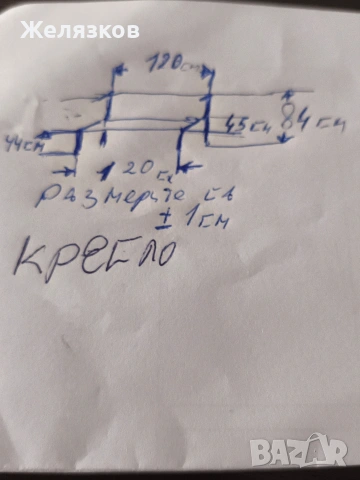 Желязков
120см
45см
84см
44см
120см
Размерите са
± 1см
КРЕСЛО
BAZAR